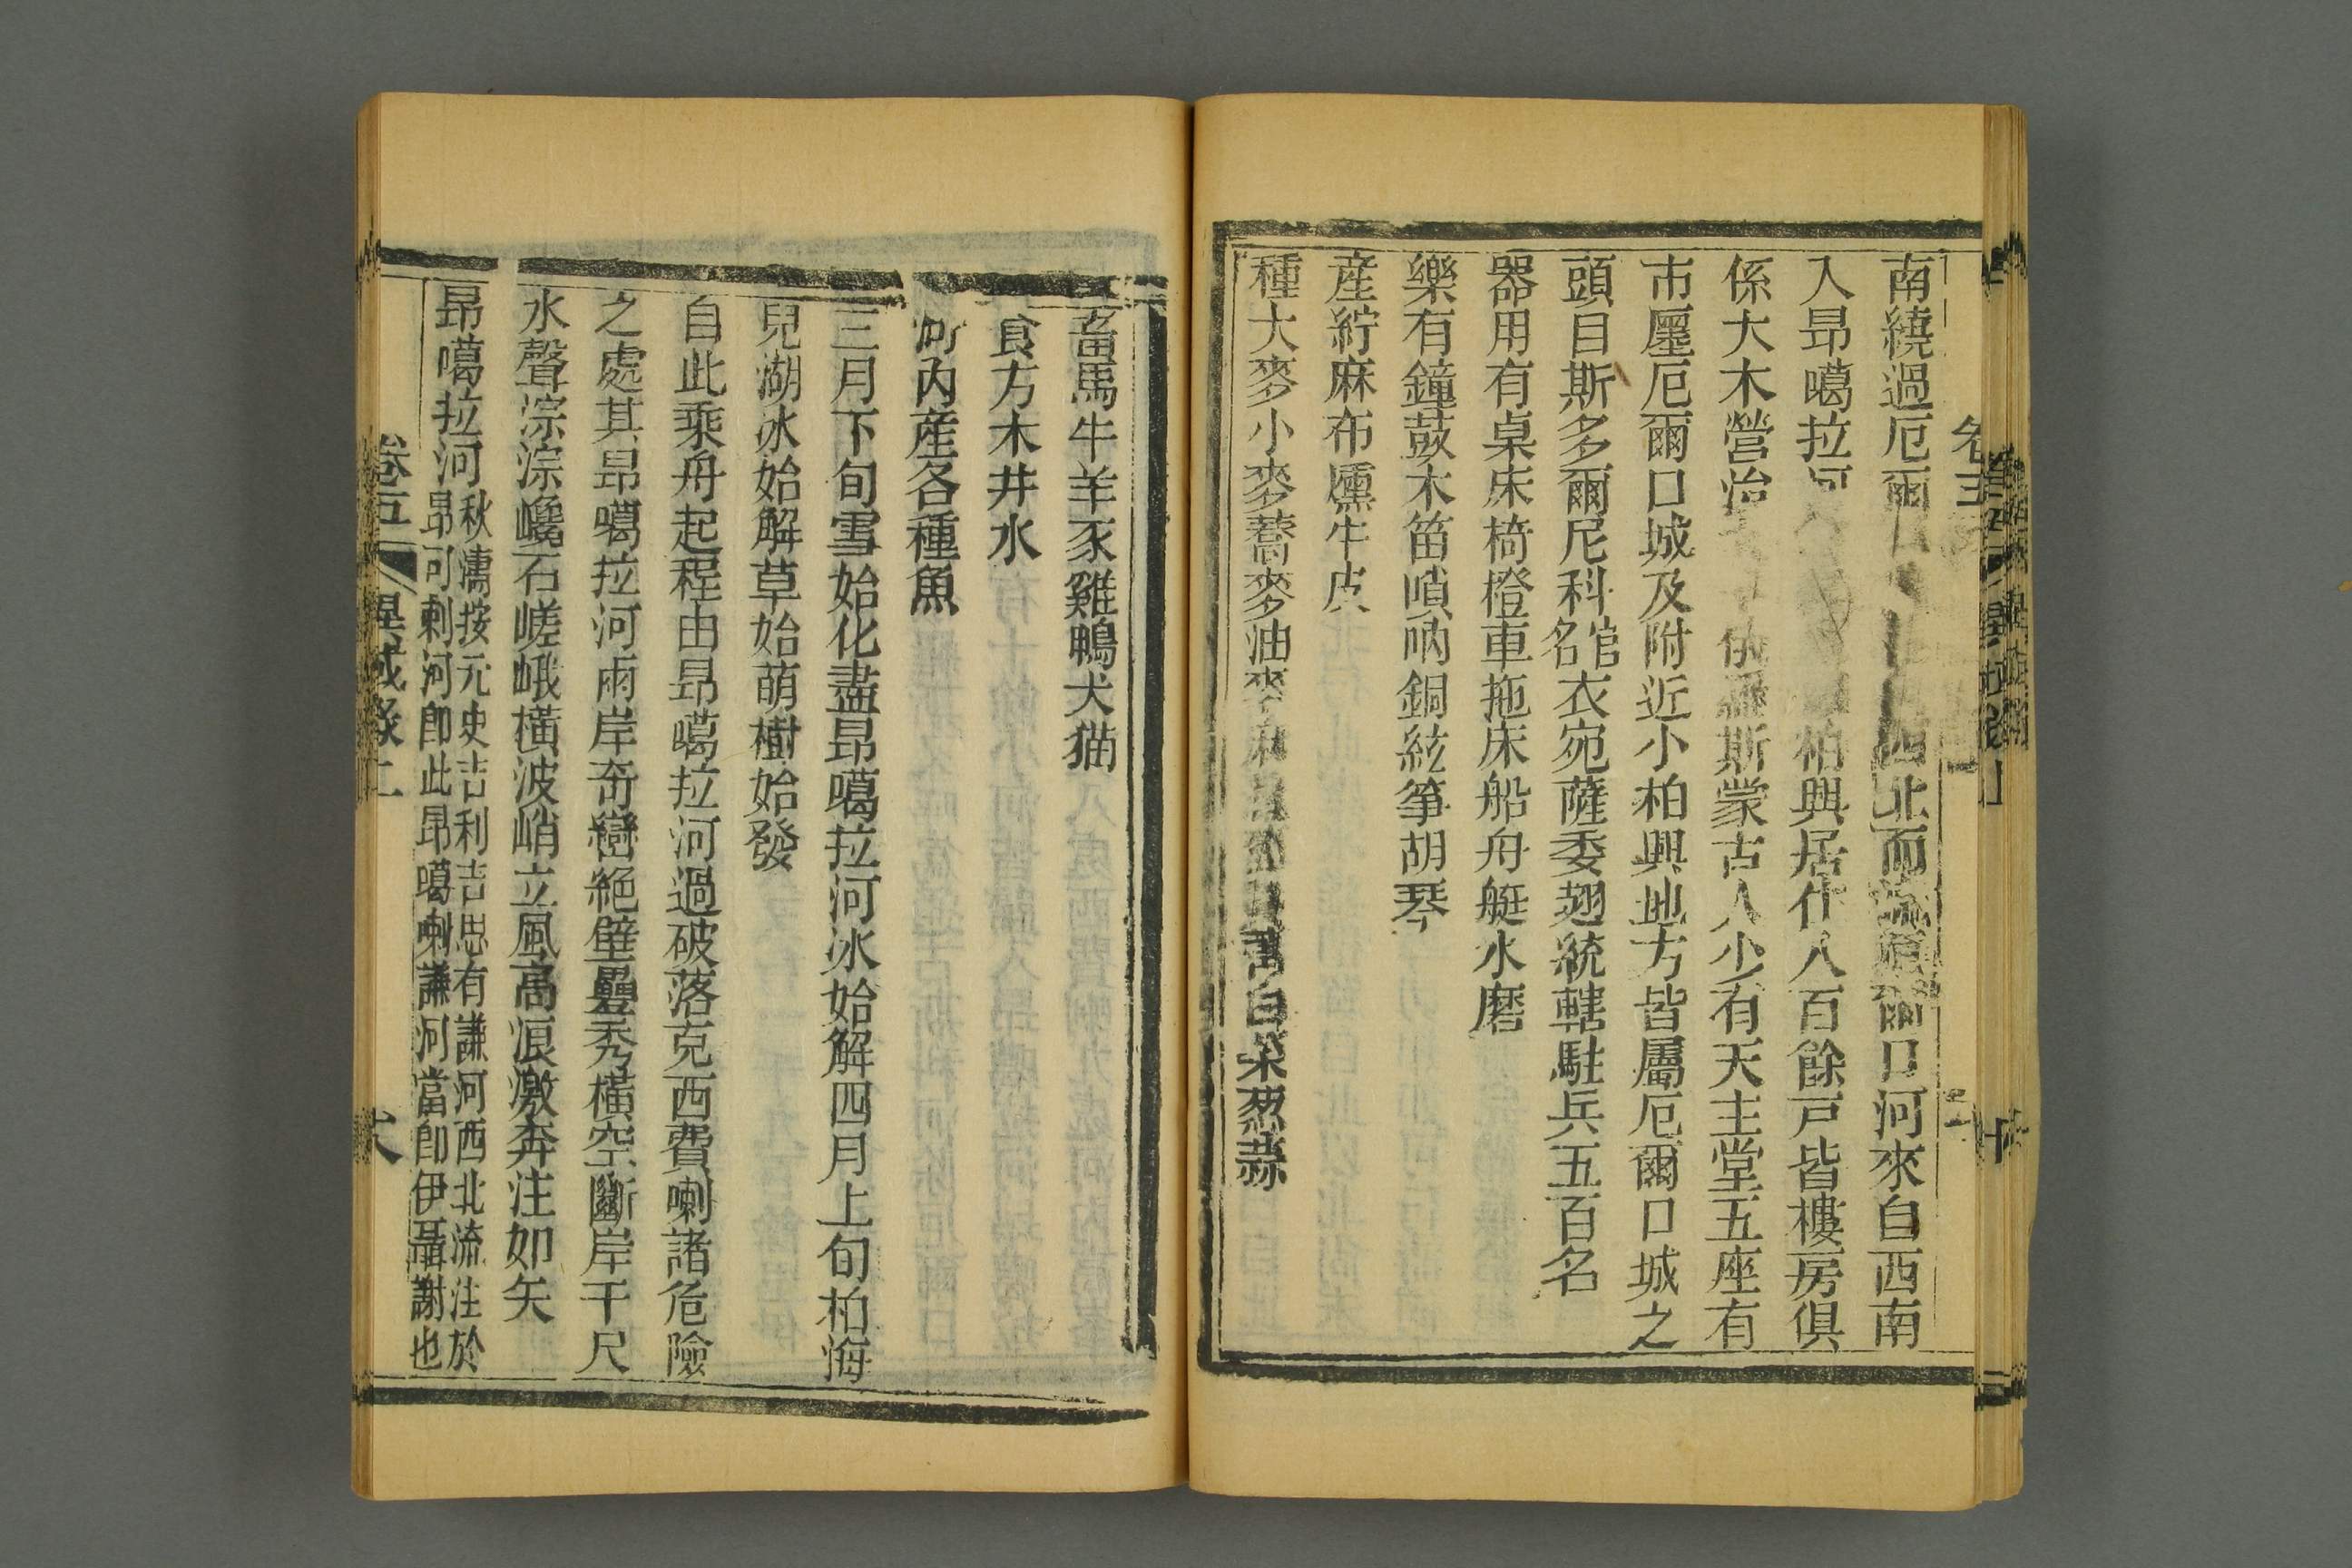 南繞過厄爾西北而厄爾口河來自西南
入昻噶拉河柏興居住八百餘戸皆樓房俱
係大木營治俄羅斯蒙古人少有天主堂五座有
市廛厄爾口城及附近小柏興地方皆屬厄爾口城之
頭目斯多爾尼科官名衣宛薩委翅統轄駐兵五百名
器用有桌床椅橙車拖床船舟艇水磨
樂有鐘鼓木笛嗩吶銅絃箏胡琴
産紵麻布燻牛皮
種大麥小麥蕎麥油麥白菜葱蒜
畜馬牛羊豕雞鴨犬猫
食方木井水
河內産各種魚
三月下旬雪始化盡昻噶拉河冰始解四月上旬柏海
兒湖冰始解草始萌樹始發
自此乘舟起程由昻噶拉河過破落克西費喇諸危險
之處其昻噶拉河兩岸奇巒絶壁疊秀橫空斷岸千尺
水聲淙淙巉石嵯峨橫波峭立風高浪激奔注如矢
昻噶拉河秋濤按元史吉利吉思有謙河西北流注於
昻可剌河卽此昻噶喇謙河當卽伊聶謝也
卷五
異域錄上